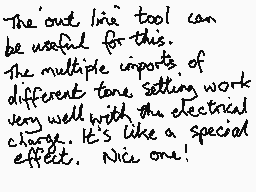 The 'out line' tool can
be useful for this.
The multiple imports of
different tone setting work
very well with the electrical
charge. It's like a special
effect. Nice one!